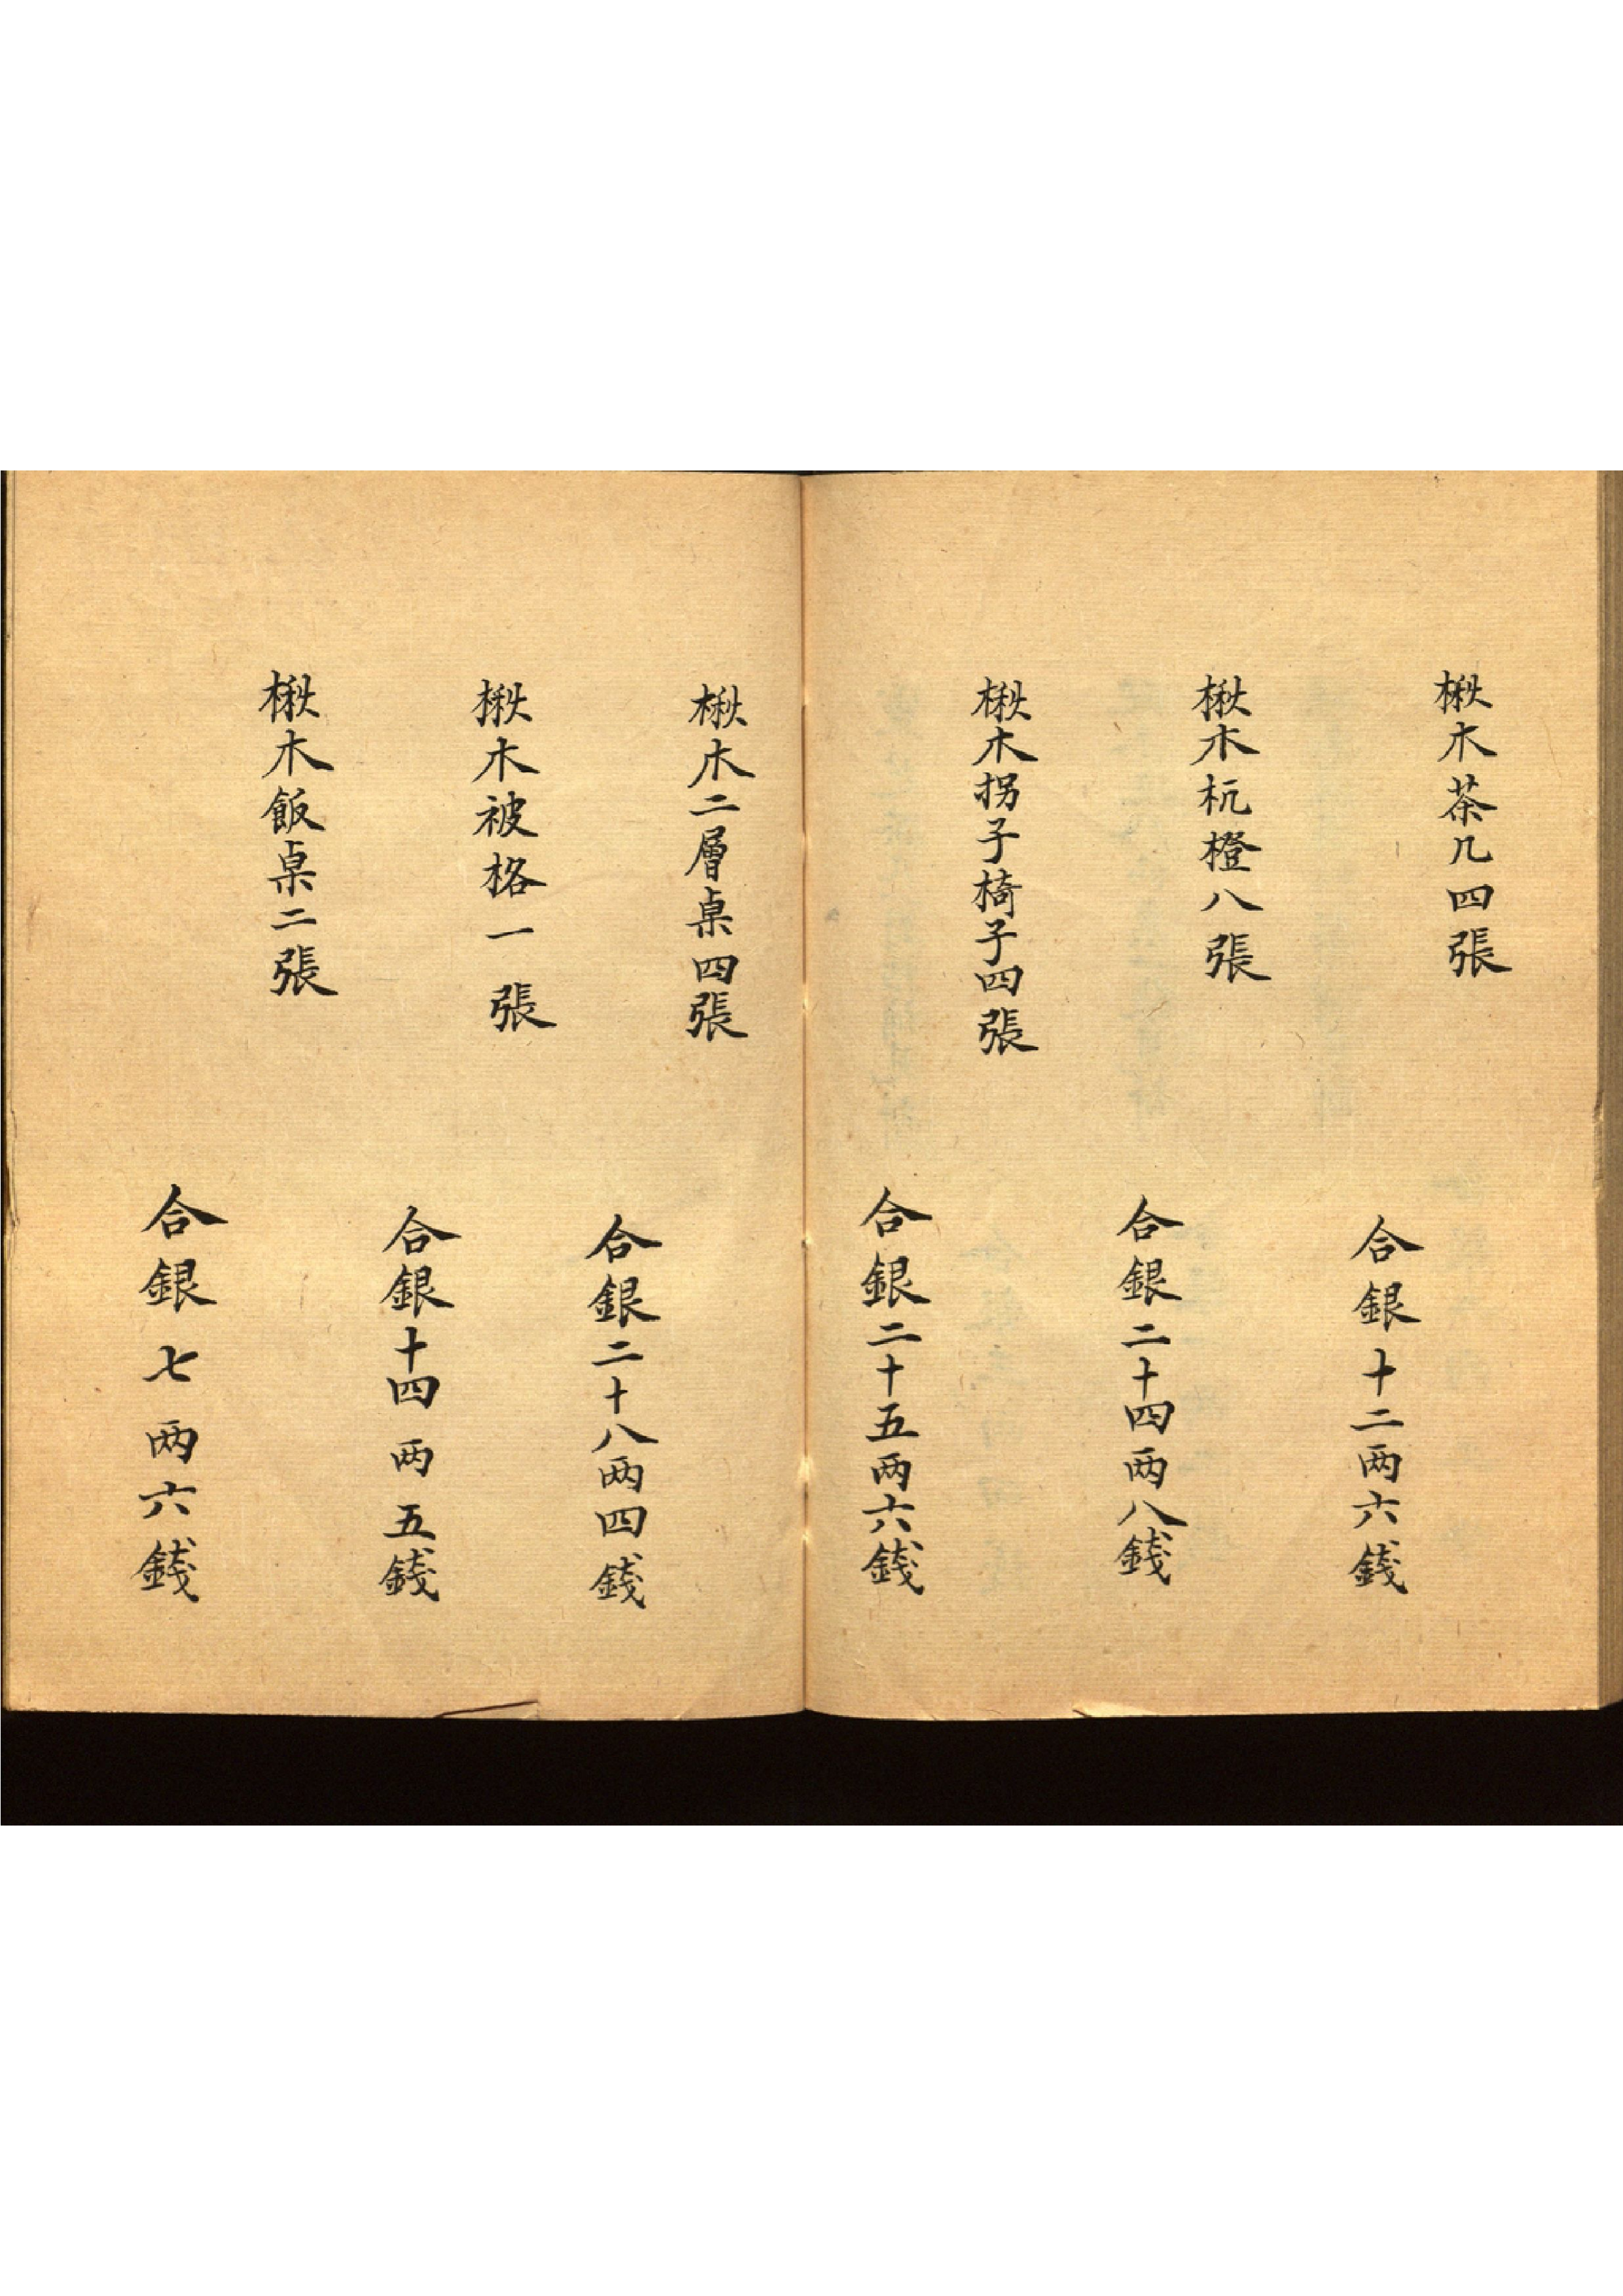 楸木茶几四張
合銀十二两六錢
楸木杌橙八張
合銀二十四两八錢
楸木拐子椅子四張
合銀二十五两六錢
楸木二層桌四張
合銀二十八两四錢
楸木被格一張
合銀十四两五錢
楸木飯桌二張
合銀七两六錢